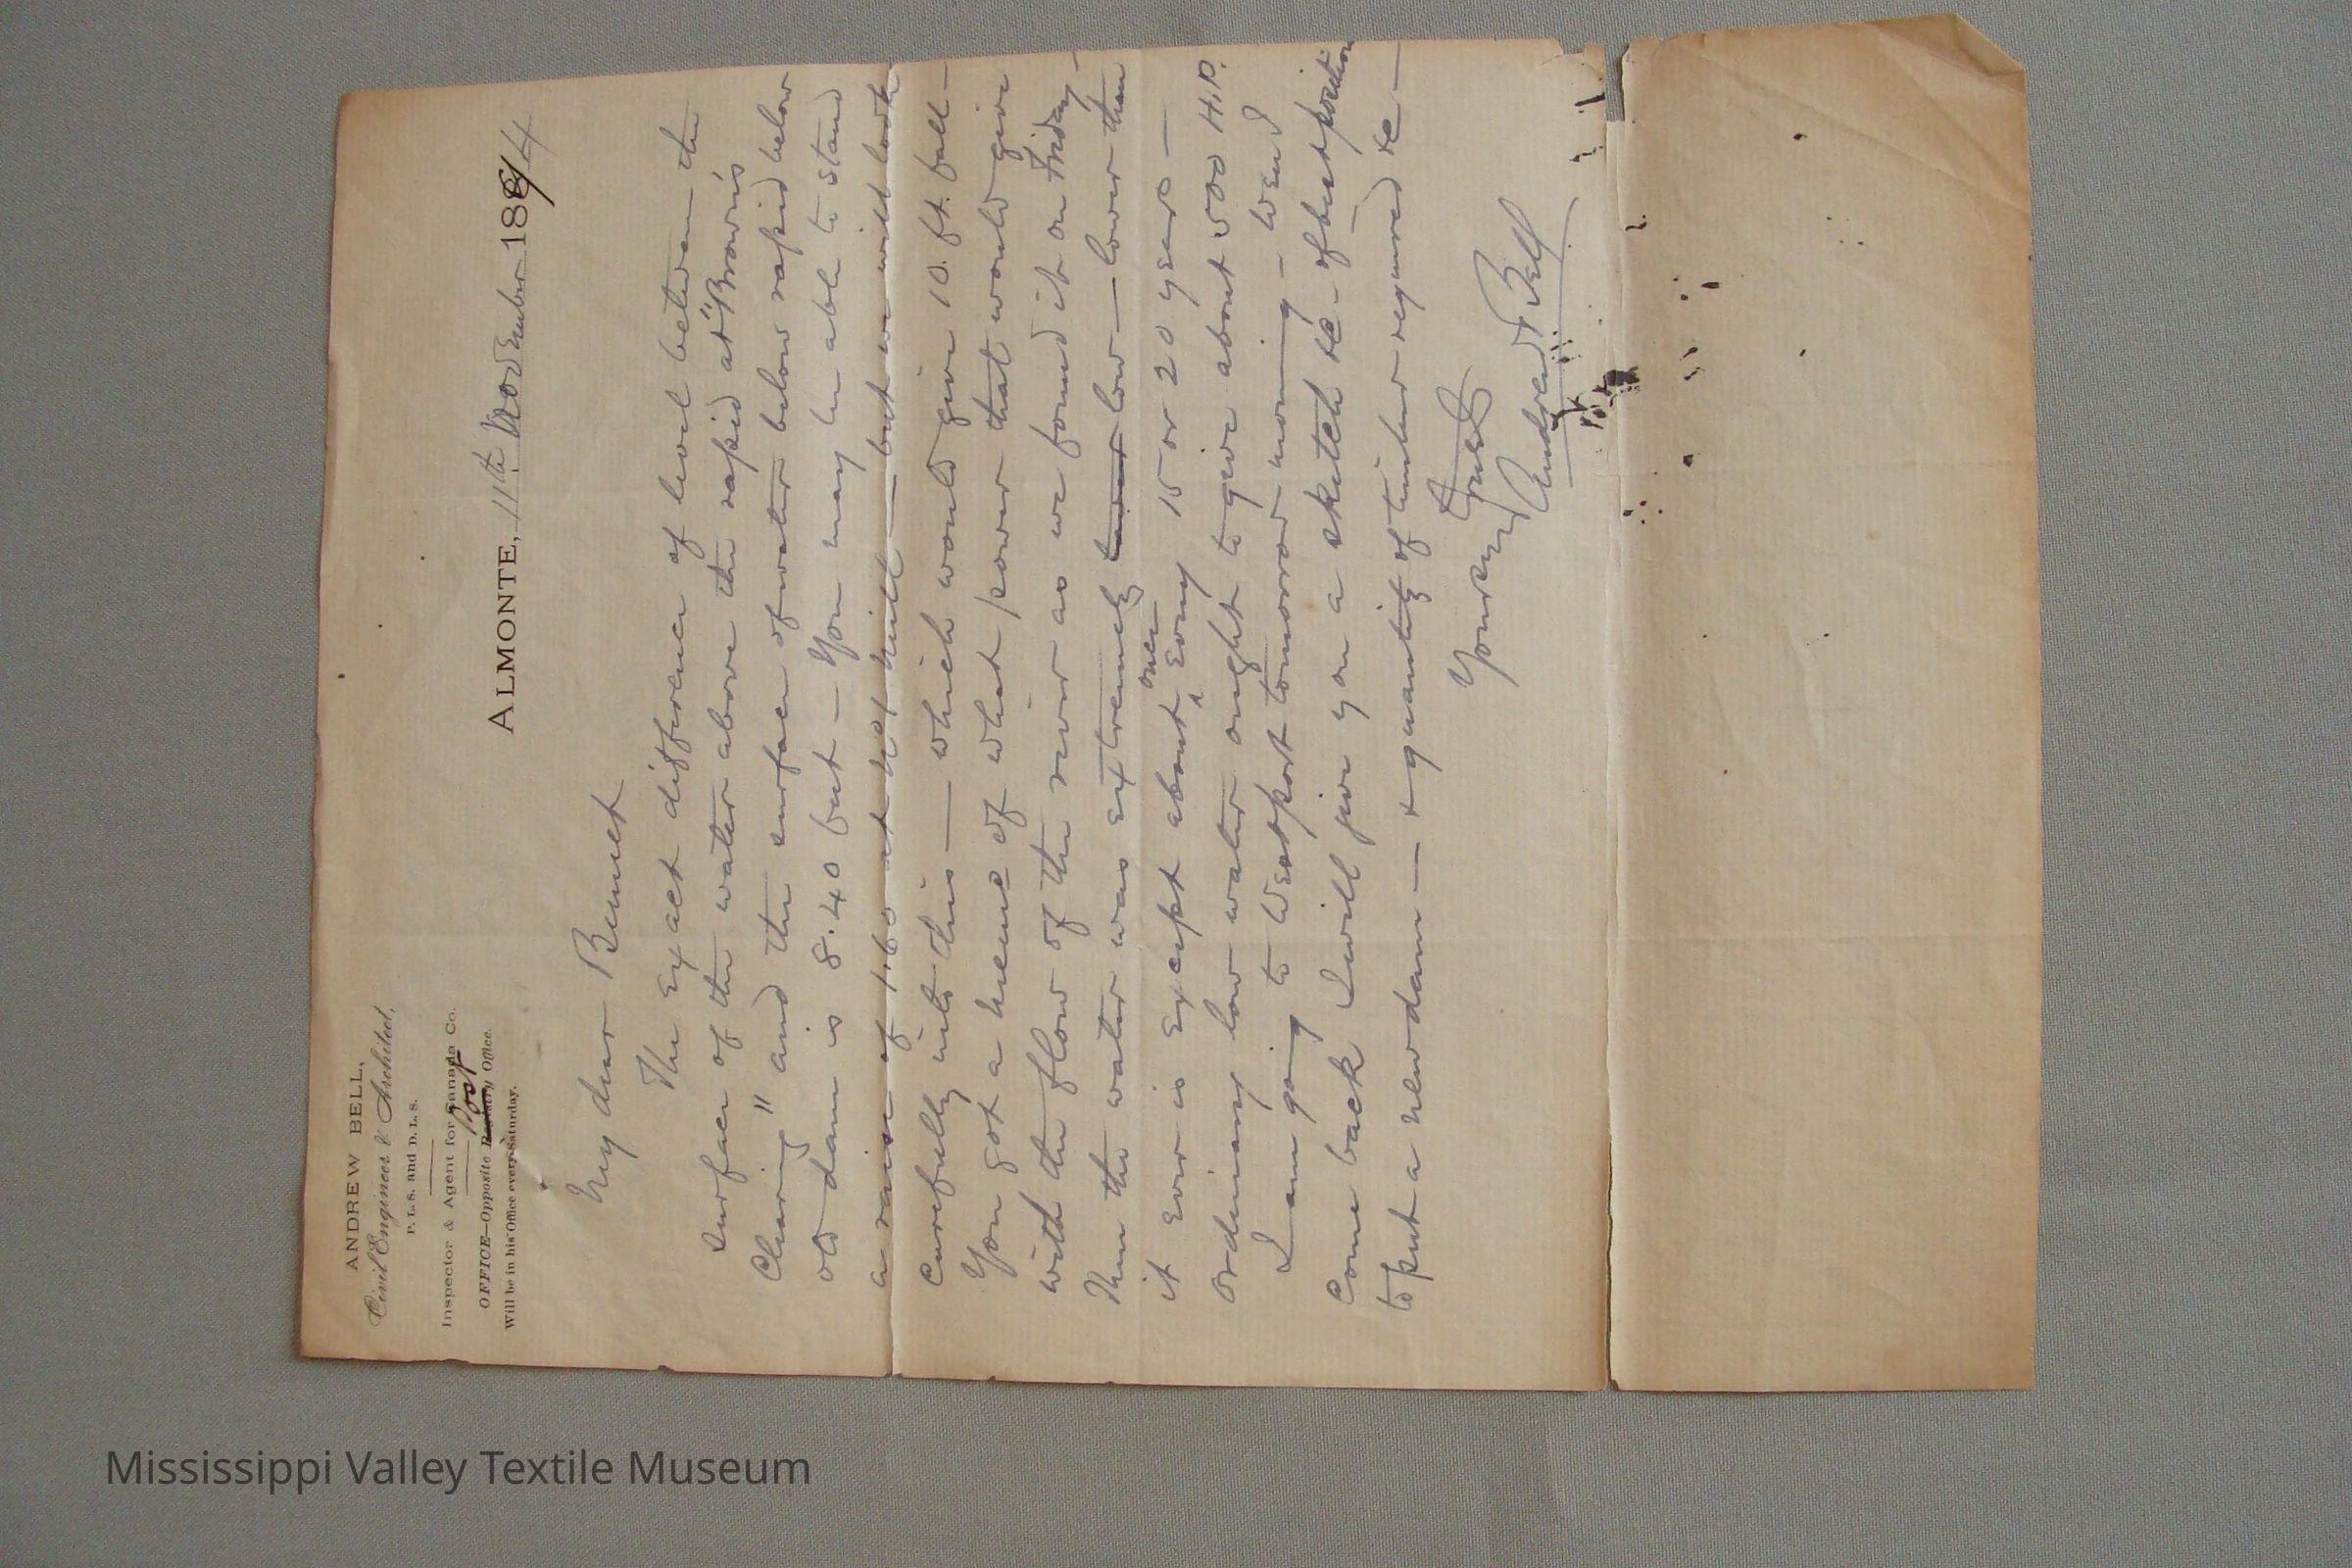 ANDREW BELL,
Civil Engineer & Architect,
P. L. S. and D. L. S.
Inspector & Agent for Canada Co.
Post
OFFICE—Opposite Registry Office.
Will be in his Office every Saturday.
ALMONTE, 11th November 1894
My dear Bennet
The exact difference of level between the
surface of the water above the rapid at "Brown's
Clearing" and the surface of water below rapid below
old dam is 8.40 but - You may be able to stand
a raise of 1.60 at mill — but we will look
carefully into this — which would give 10. ft. fall —
You got a of what power that would give
with the flow of the river as we found it on Friday —
Then the water was extremely low — lower than
it ever is except about once every 15 or 20 years —
ordinary low water ought to give about 500 H.P.
I am going to Westport tomorrow morning - when I
come back I will give you a sketch &c - of best position
to put a new dam — & quantity of timber required &c —
Yours very truly
Andrew Bell
Mississippi Valley Textile Museum